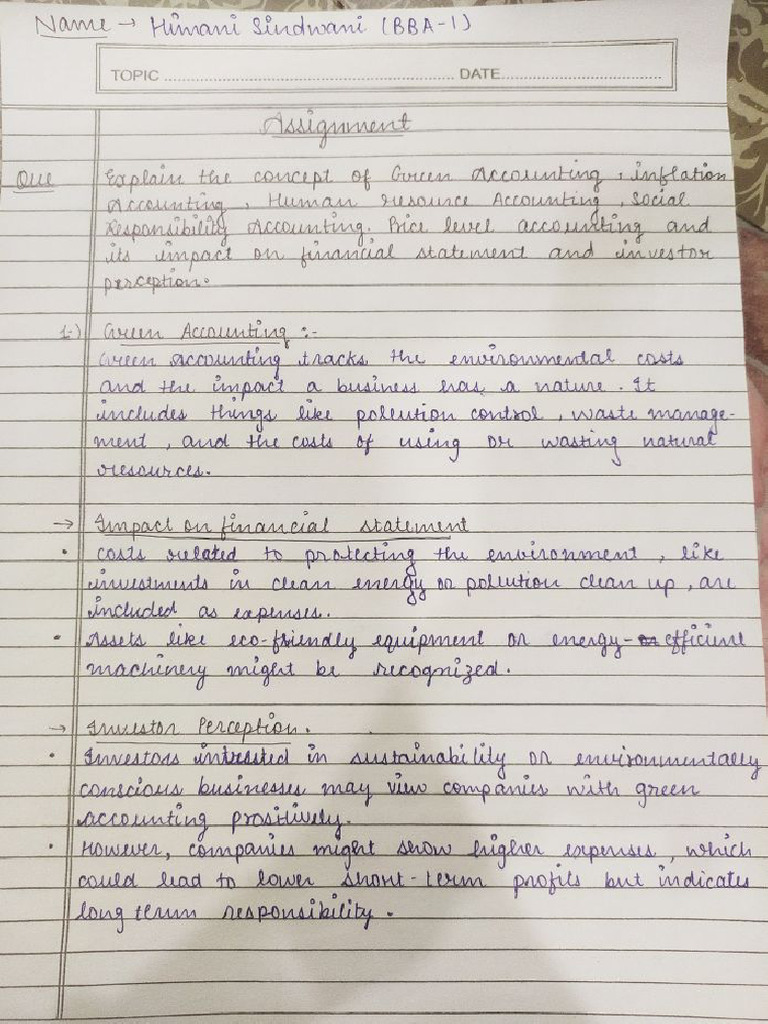 Name → Himani Sindwani (BBA-1)
TOPIC ........ DATE........
Assignment
Que Explain the concept of Green Accounting, inflation
Accounting, Human resource Accounting, Social
Responsibility Accounting. Price level accounting and
its impact on financial statement and investor
perception.
1-) Green Accounting :-
Green accounting tracks the environmental costs
and the impact a business has a nature. It
includes things like pollution control, waste manage-
ment, and the costs of using or wasting natural
resources.
→ Impact on financial statement
• Costs related to protecting the environment, like
investments in clean energy or pollution clean up, are
included as expenses.
• Assets like eco-friendly equipment or energy-efficient
machinery might be recognized.
→ Investor Perception.
• Investors intrested in sustainability or environmentally
conscious businesses may view companies with green
accounting prositively.
• However, companies might show higher expenses, which
could lead to lower short-term profits but indicates
long term responsibility.